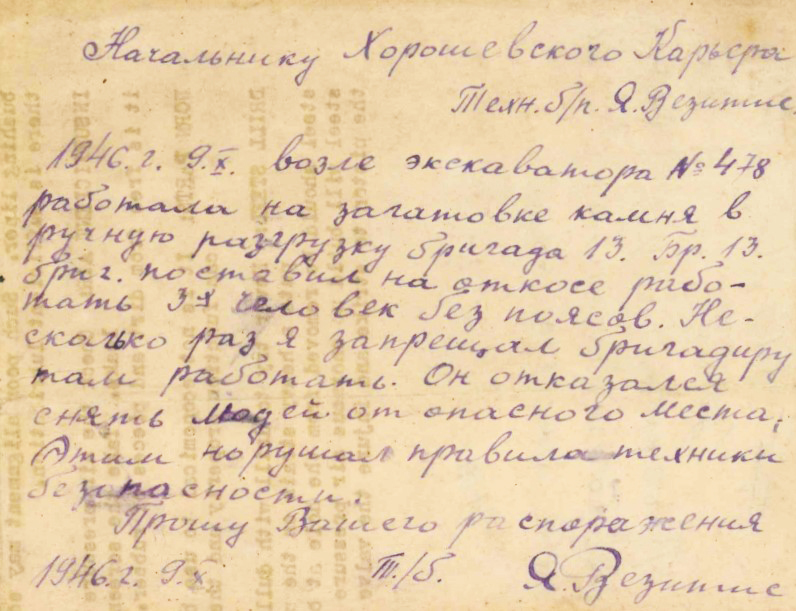 Начальнику Хорошевского Карьера
Техн. б/п. Я. Везитис.
1946.г. 9.X. возле экскаватора № 478
работала на загатовке камня в
ручную разгрузку бригада 13. Бр. 13.
бриг. поставил на откосе рабо-
тать 3-х человек без поясов. Не-
сколько раз я запрещал бригадиру
там работать. Он отказался
снять людей от опасного места,
Этим норушал правила техники
безопасности.
Прошу Вашего распоражения
1946.г. 9.X. Т./б. Я. Везитис